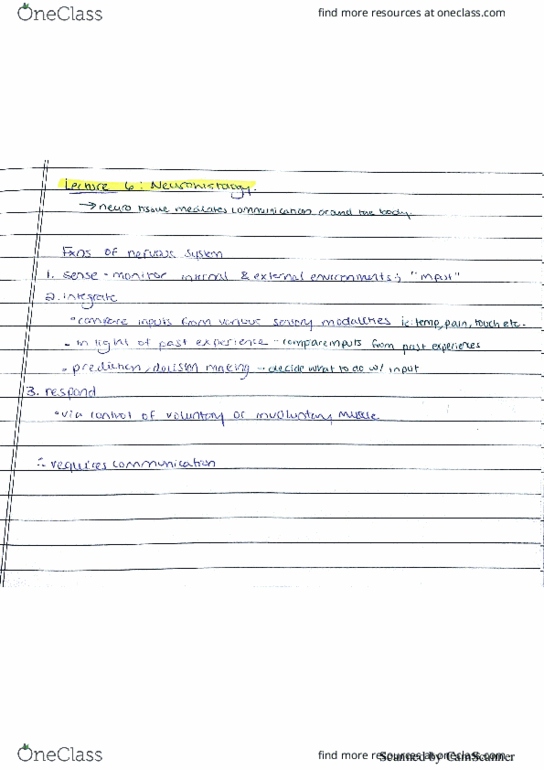 OneClass
find more resources at oneclass.com
Lecture 6: Neurohistology.
→ neuro tissue mediates communication around the body.
Fxns of nervous system
1. sense - monitor internal & external environments; "input"
2. integrate
• compare inputs from various sensory modalities ie: temp, pain, touch etc.
• in light of past experience - compare inputs from past experiences
• prediction, decision making - decide what to do w/ input
3. respond
• via control of voluntary or involuntary muscle
∴ requires communication
OneClass
find more resources at oneclass.com
Scanned by CamScanner